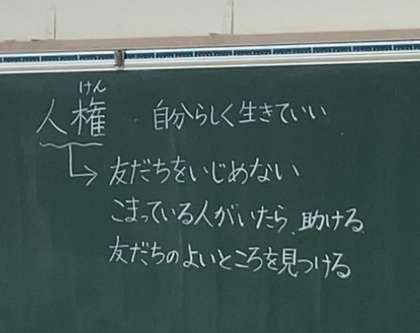 けん
人権 自分らしく生きていい
友だちをいじめない
こまっている人がいたら、助ける
友だちのよいところを見つける